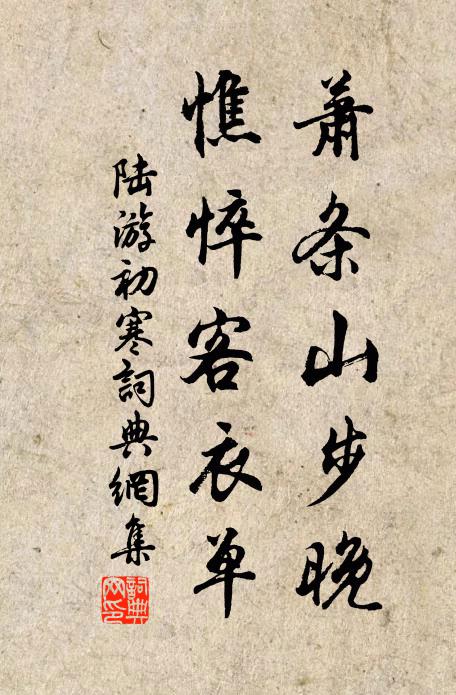 萧条山步晚
憔悴客衣单
陆游初寒詞典網集
詞典网印